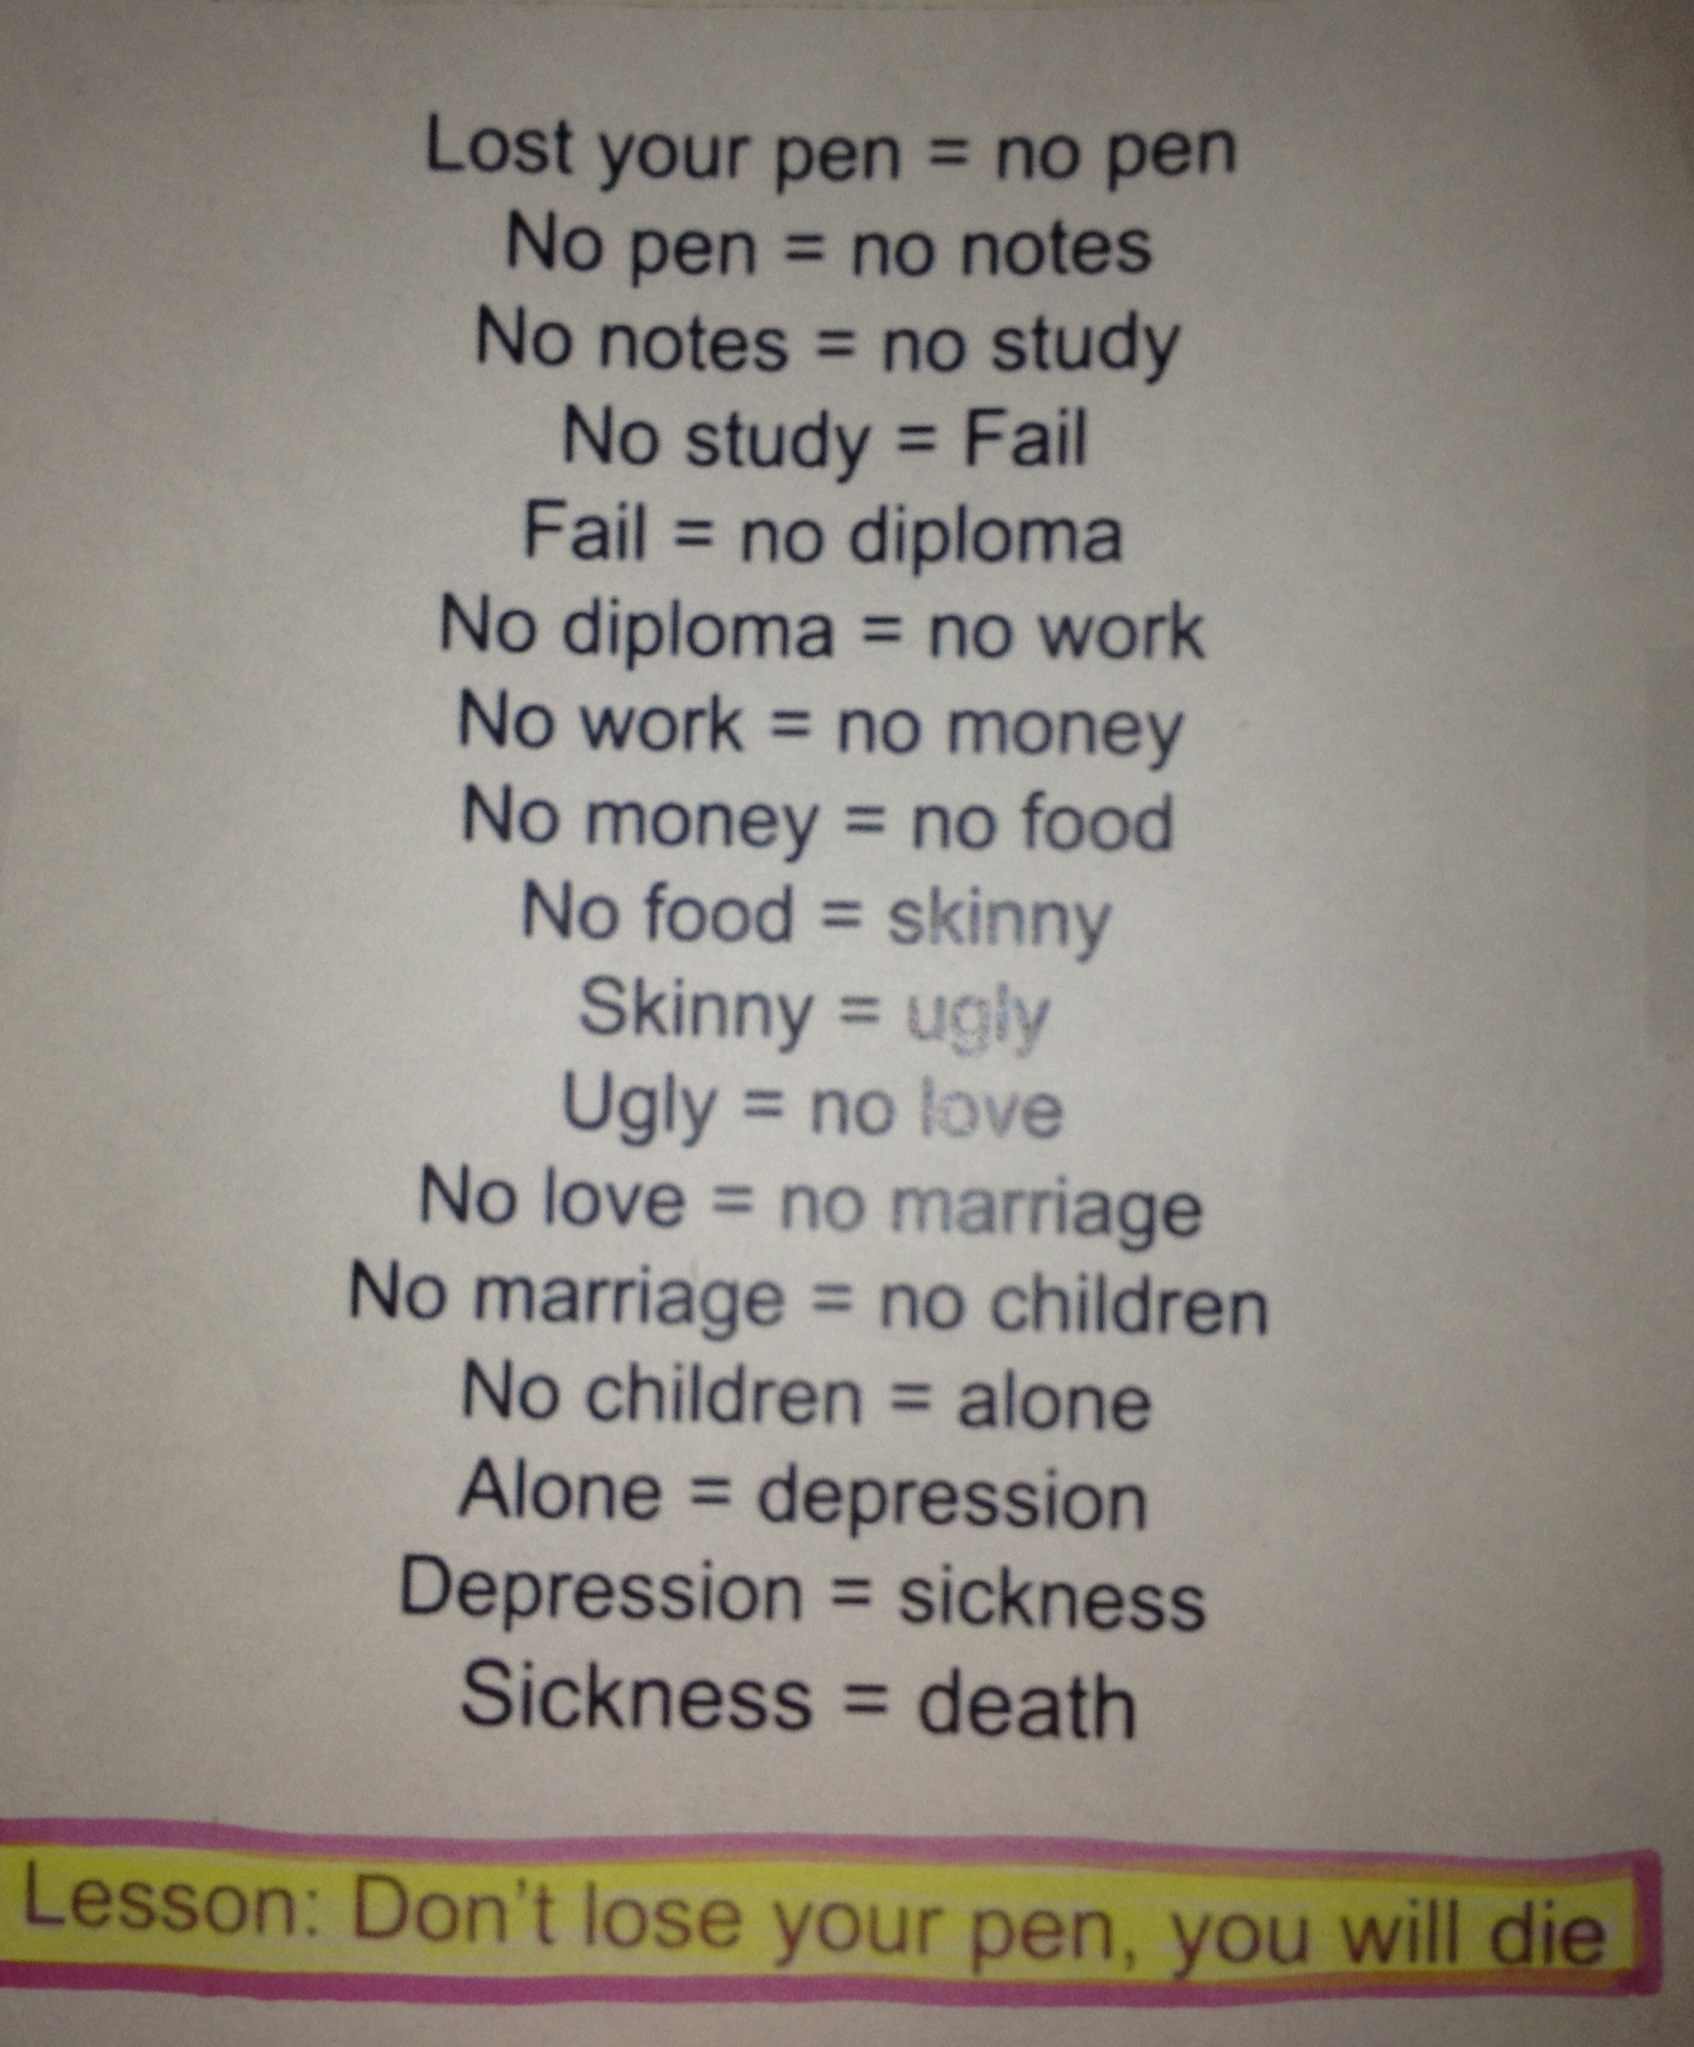 Lost your pen = no pen
No pen = no notes
No notes = no study
No study = Fail
Fail = no diploma
No diploma = no work
No work = no money
No money = no food
No food = skinny
Skinny = ugly
Ugly = no love
No love = no marriage
No marriage = no children
No children = alone
Alone = depression
Depression = sickness
Sickness = death
Lesson: Don't lose your pen, you will die